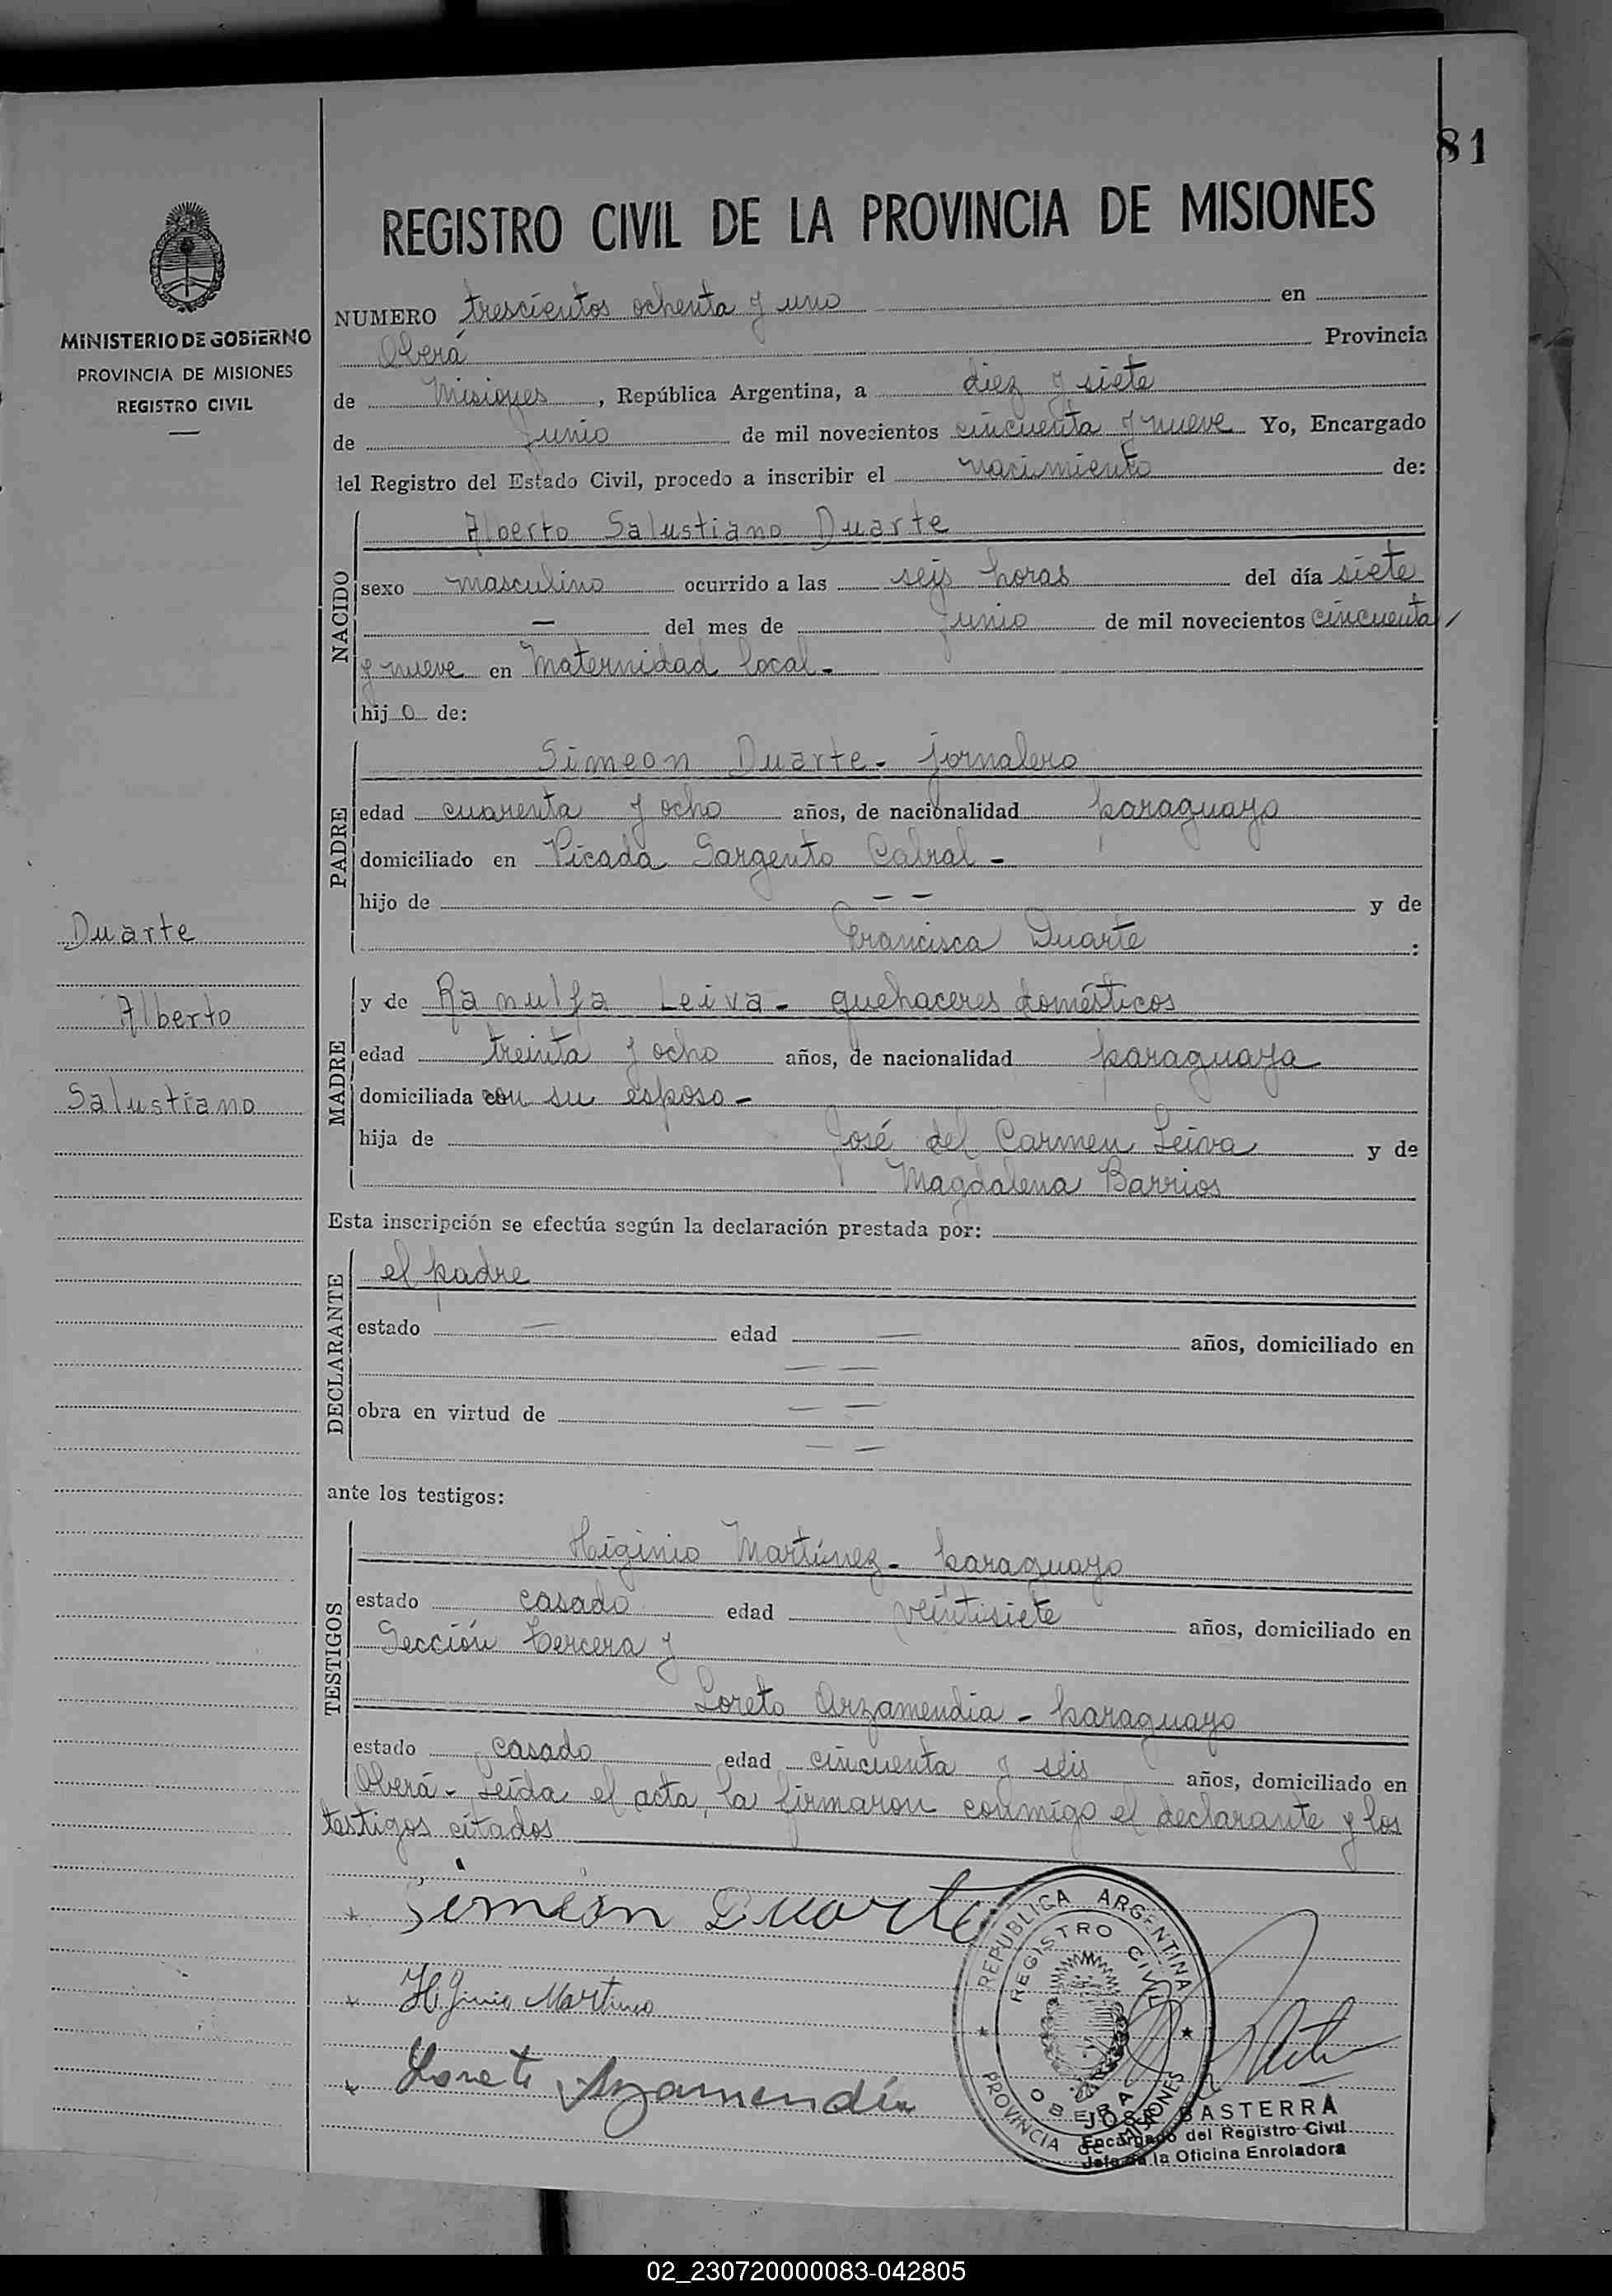 81
REGISTRO CIVIL DE LA PROVINCIA DE MISIONES
MINISTERIO DE GOBIERNO
PROVINCIA DE MISIONES
REGISTRO CIVIL
NUMERO trescientos ochenta y uno en
Oberá Provincia
de Misiones, República Argentina, a diez y siete
de Junio de mil novecientos cincuenta y nueve Yo, Encargado
del Registro del Estado Civil, procedo a inscribir el nacimiento de:
NACIDO
Alberto Salustiano Duarte
sexo masculino ocurrido a las seis horas del día siete
— del mes de Junio de mil novecientos cincuenta
y nueve en Maternidad local.-
hijo de:
PADRE
Simeon Duarte - jornalero
edad cuarenta y ocho años, de nacionalidad paraguayo
domiciliado en Picada Sargento Cabral -
hijo de — — y de
Francisca Duarte :
Duarte
Alberto
Salustiano
MADRE
y de Ranulfa Leiva - quehaceres domésticos
edad treinta y ocho años, de nacionalidad paraguaya
domiciliada con su esposo -
hija de José del Carmen Leiva y de
Magdalena Barrios
Esta inscripción se efectúa según la declaración prestada por:
DECLARANTE
el padre
estado — edad — años, domiciliado en
— —
obra en virtud de — —
— —
ante los testigos:
TESTIGOS
Higinio Martínez - paraguayo
estado casado edad veintisiete años, domiciliado en
Sección Tercera y
Loreto Arzamendia - paraguayo
estado casado edad cincuenta y seis años, domiciliado en
Oberá - Leída el acta, la firmaron conmigo el declarante y los
testigos citados
Simeón Duarte
Higinio Martinez
Loreto Arzamendia
REPUBLICA ARGENTINA
REGISTRO CIVIL
OBERA
PROVINCIA DE MISIONES
BASTERRA
Encargado del Registro Civil
Jefe de la Oficina Enroladora
02_230720000083-042805